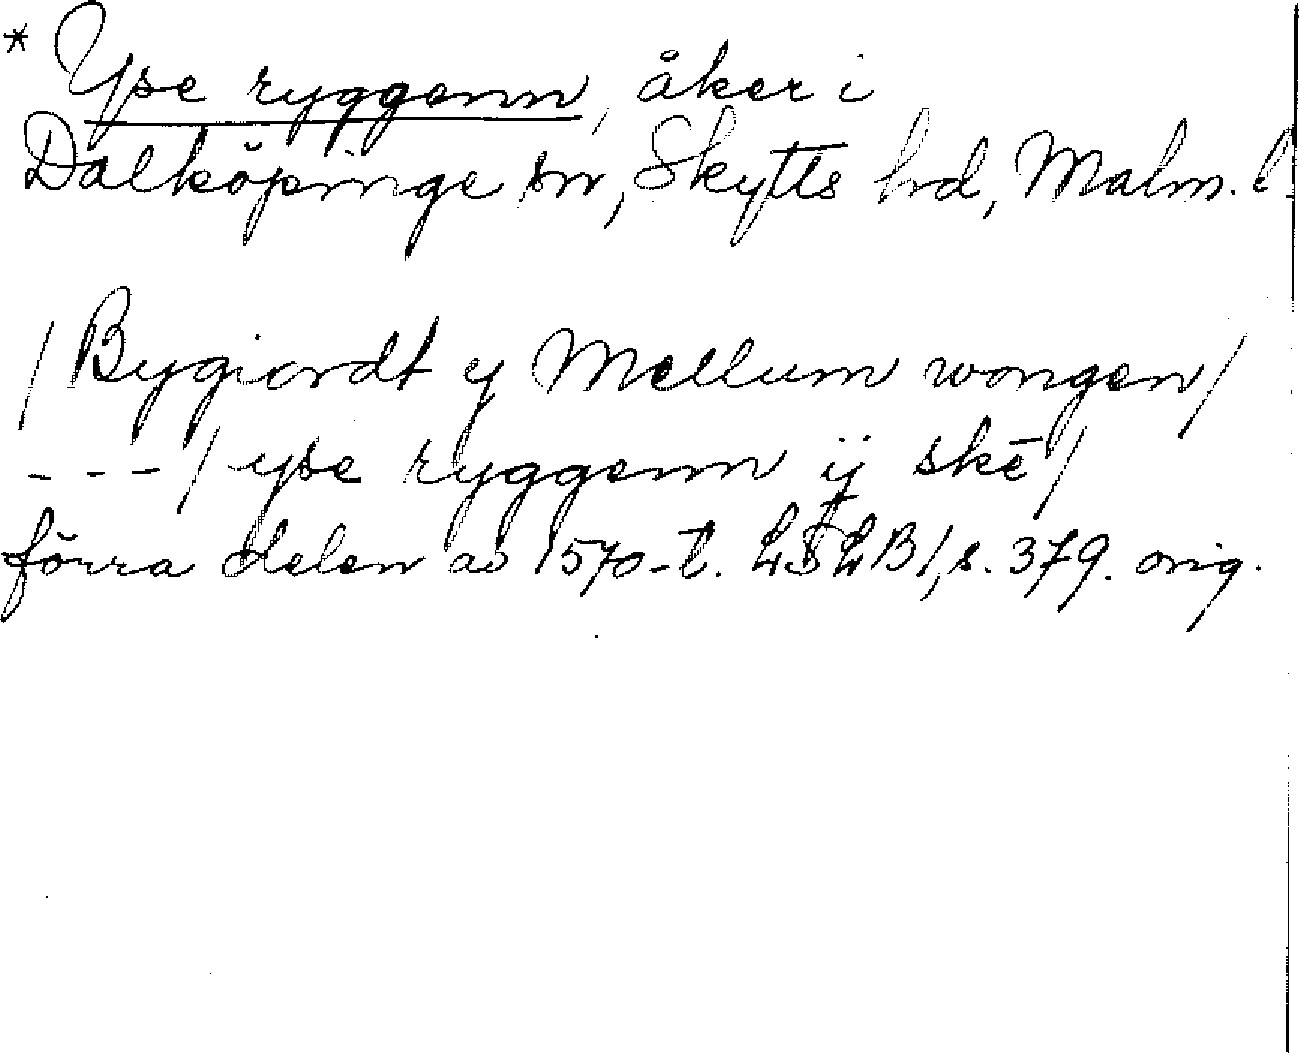 * Yse ryggenn, åker i
Dalköpinge sn, Skytts hd, Malm. l.
/Bygiordt y Mellum wongen/
- - - / yse ryggenn ij skē/
förra delen av 1570-t. LSLB 1, s. 379. orig.